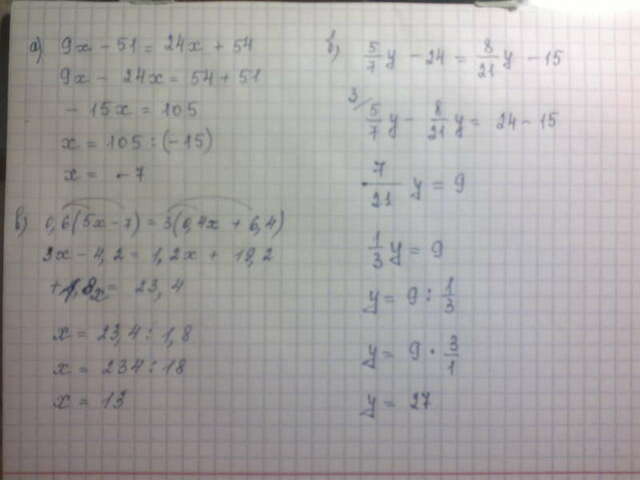 а) 9x - 51 = 24x + 54
9x - 24x = 54 + 51
- 15x = 105
x = 105 : (-15)
x = -7
в) 0,6(5x - 7) = 3(0,4x + 6,4)
3x - 4,2 = 1,2x + 19,2
+1,8x = 23,4
x = 23,4 : 1,8
x = 234 : 18
x = 13
б) 5/7 y - 24 = 8/21 y - 15
3/ 5/7 y - 8/21 y = 24 - 15
7/21 y = 9
1/3 y = 9
y = 9 : 1/3
y = 9 · 3/1
y = 27